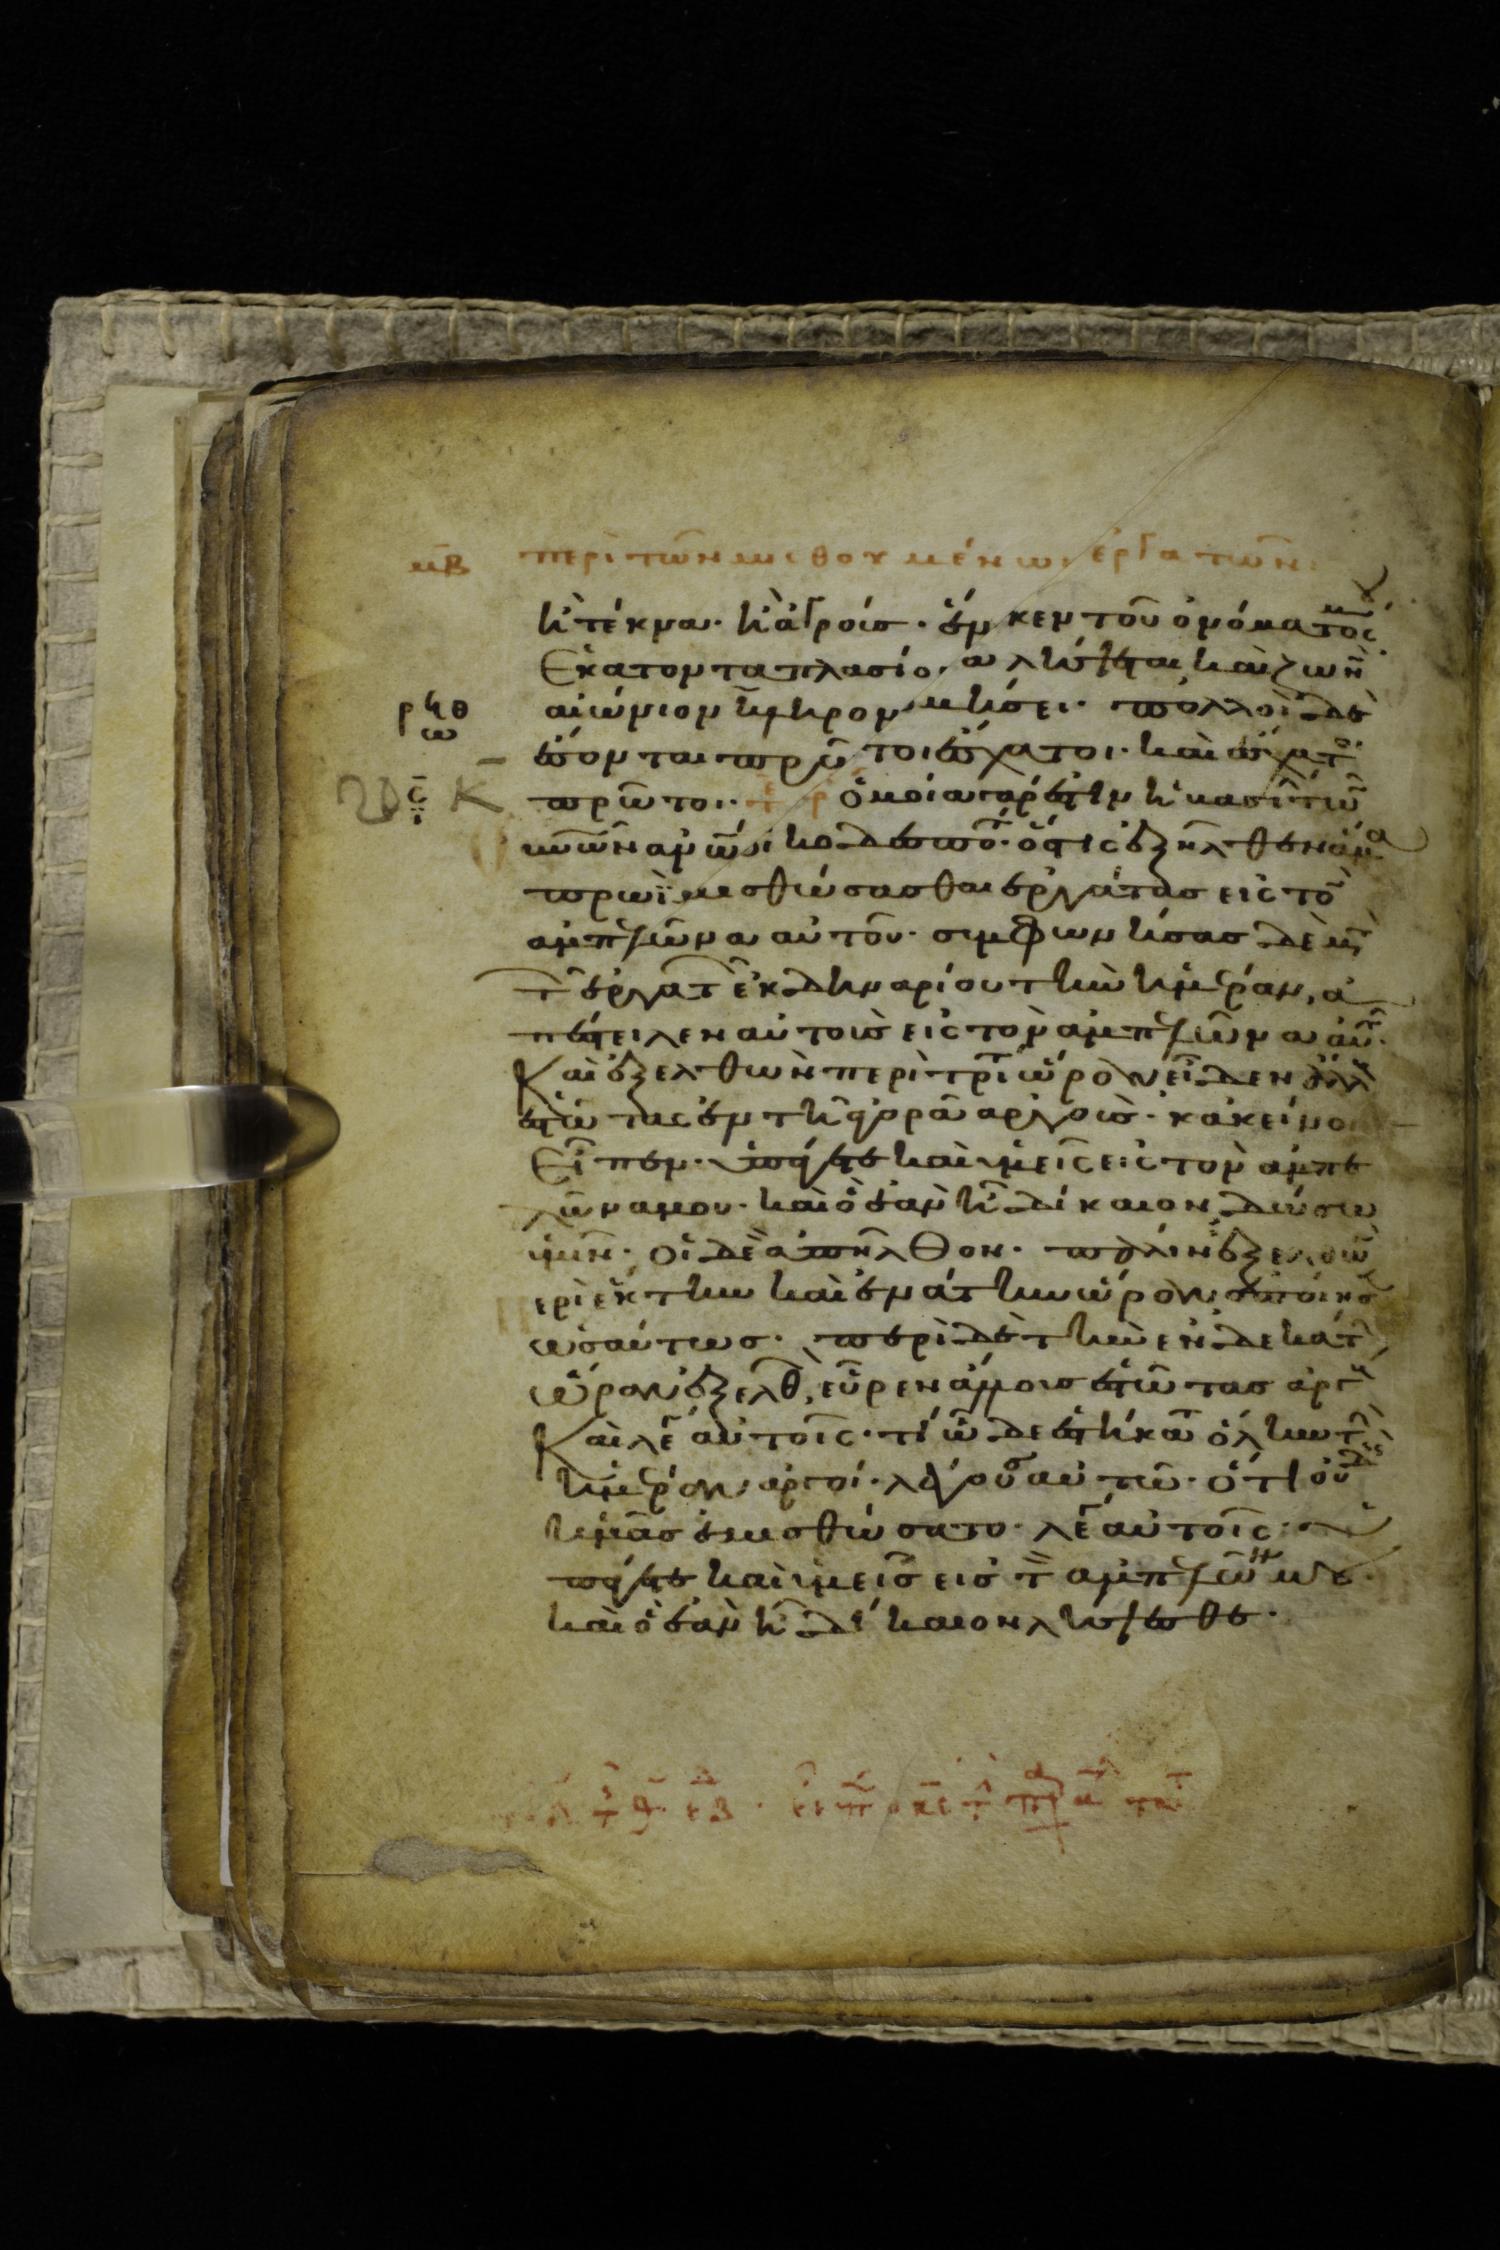 μβ περὶ τῶν μισθουμένων ἐργατῶν
ἢ τέκνα· ἢ ἀγροὺς· ἕνεκεν τοῦ ὀνόματός μου
ἑκατονταπλασίονα λήψεται καὶ ζωὴν
ρϟθ αἰώνιον κληρονομήσει· πολλοὶ δὲ
ἔσονται πρῶτοι ἔσχατοι· καὶ ἔσχατοι
ς Κ πρῶτοι· ὁμοία γάρ ἐστιν ἡ βασιλεία τῶν
οὐνῶν ἀνῶι οἰκοδεσπότ· ὅστις ἐξῆλθεν ἅμα
πρωῒ μισθώσασθαι ἐργάτας εἰς τὸν
ἀμπελῶνα αὐτοῦ· συμφωνήσας δὲ μετὰ
τῶν ἐργατῶν ἐκ δηναρίου τὴν ἡμέραν, ἀ
πέστειλεν αὐτοὺς εἰς τὸν ἀμπελῶνα αὐτοῦ·
Καὶ ἐξελθὼν περὶ τρίτην ὥραν εἶδεν ἄλλους
ἑστῶτας ἐν τῇ ἀγορᾷ ἀργοὺς· κἀκείνοις
εἶπεν· ὑπάγετε καὶ ὑμεῖς εἰς τὸν ἀμπε
λῶνα μου· καὶ ὃ ἐὰν ᾖ δίκαιον δώσω
ὑμῖν· οἱ δὲ ἀπῆλθον· πάλιν ἐξελθὼν
περὶ ἕκτην καὶ ἐνάτην ὥραν ἐποίησεν
ὡσαύτως· περὶ δὲ τὴν ἑνδεκάτην
ὥραν ἐξελθὼν, εὗρεν ἄλλους ἑστῶτας ἀργούς
Καὶ λέγει αὐτοῖς· τί ὧδε ἑστήκατε ὅλην τὴν
ἡμέραν ἀργοί· λέγουσιν αὐτῷ· ὅτι οὐδεὶς
ἡμᾶς ἐμισθώσατο· λέγει αὐτοῖς· ὑ
πάγετε καὶ ὑμεῖς εἰς τὸν ἀμπελῶνά μου·
καὶ ὃ ἐὰν ᾖ δίκαιον λήψεσθε·